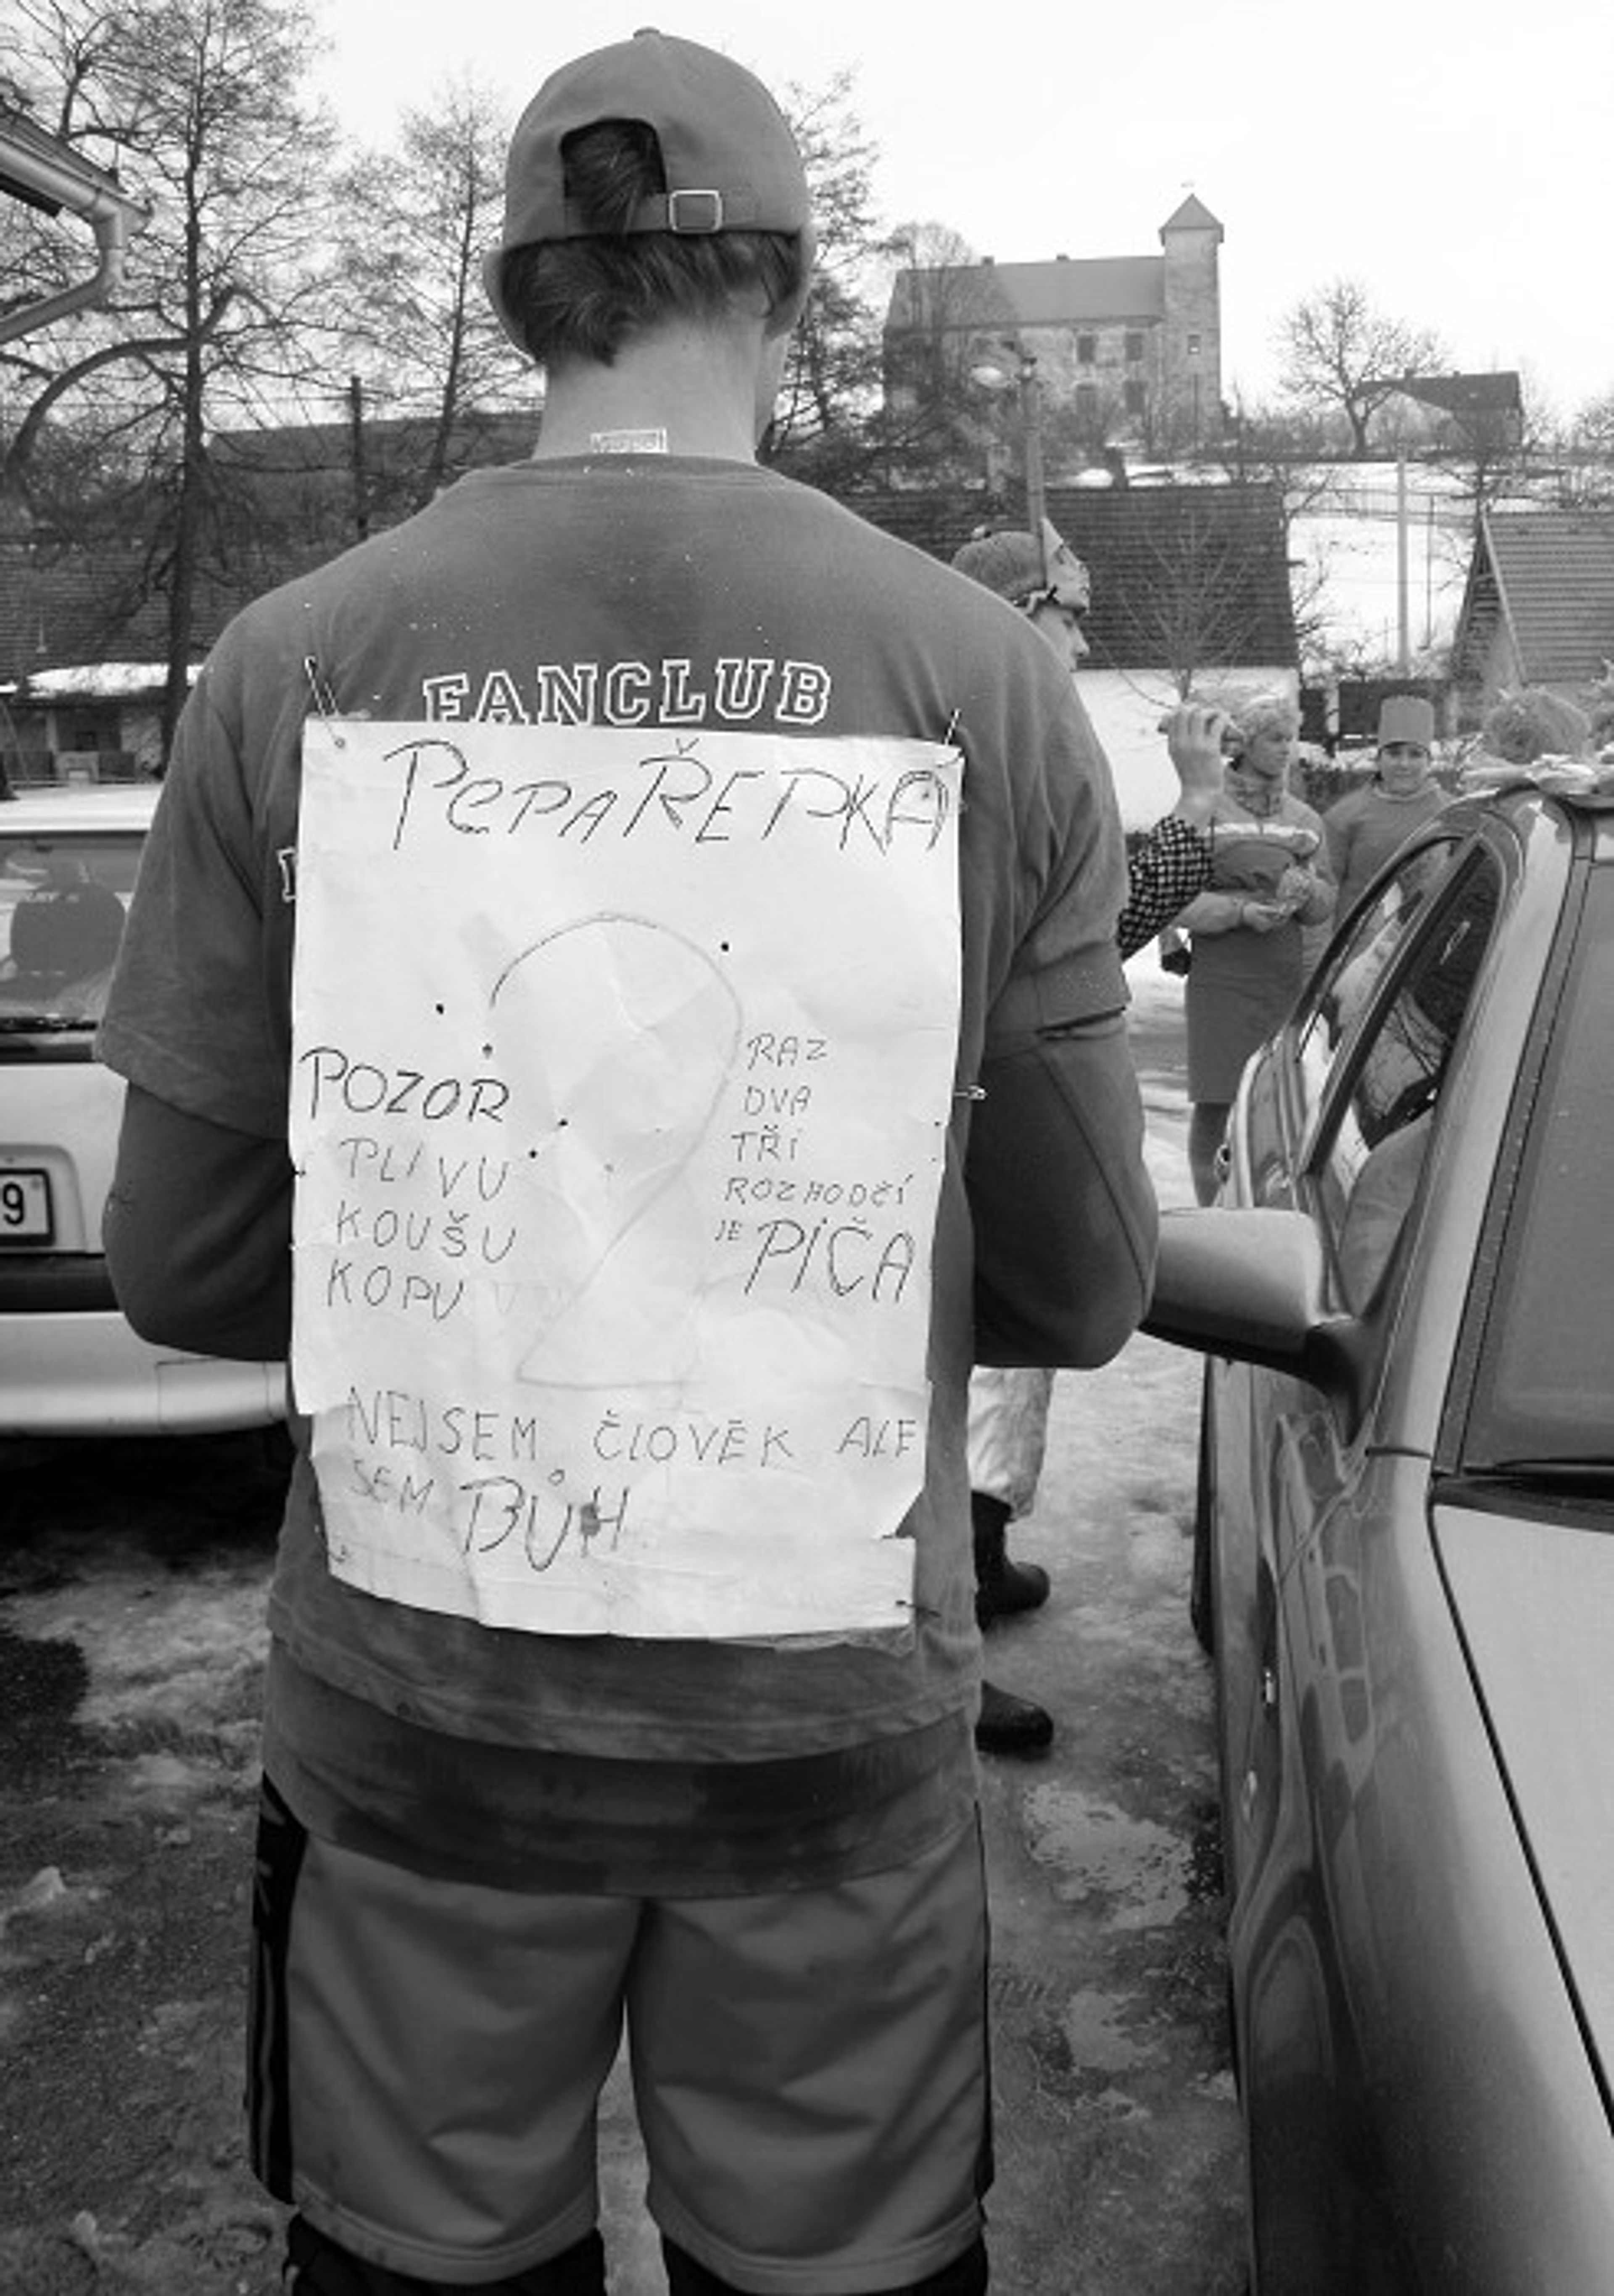 FANCLUB
PEPA ŘEPKA
2
POZOR
PLIVU
KOUŠU
KOPU
RAZ
DVA
TŘI
ROZHODČÍ
JE PIČA
NEJSEM ČLOVĚK ALE
SEM BŮH
9